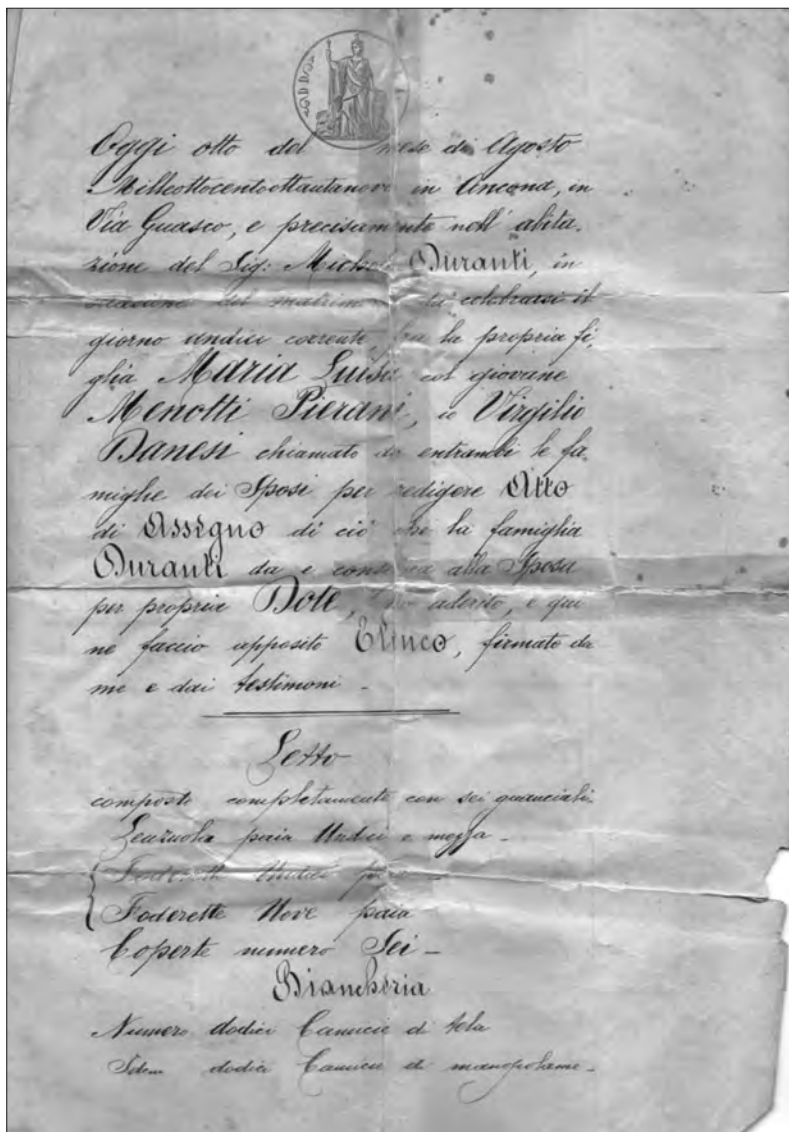 Oggi otto del mese di Agosto
Milleottocentoottantanove in Ancona, in
Via Guasco, e precisamente nell'abita-
zione del Sig: Michele Duranti, in
occasione del matrimonio da celebrarsi il
giorno undici corrente fra la propria fi-
glia Maria Luisa col giovane
Menotti Pierani, io Virgilio
Danesi chiamato da entrambi le fa-
miglie dei Sposi per redigere Atto
di Assegno di ciò che la famiglia
Duranti da e consegna alla Sposa
per propria Dote, ho aderito, e qui
ne faccio apposito Elenco, firmato da
me e dai testimoni -
Letto
composto completamente con sei guanciali.
Lenzuola paia Undici e mezza -
Foderette Undici paia -
Foderette Nove paia
Coperte numero Sei -
Biancheria
Numero dodici Camicie di tela
Idem dodici Camicie di